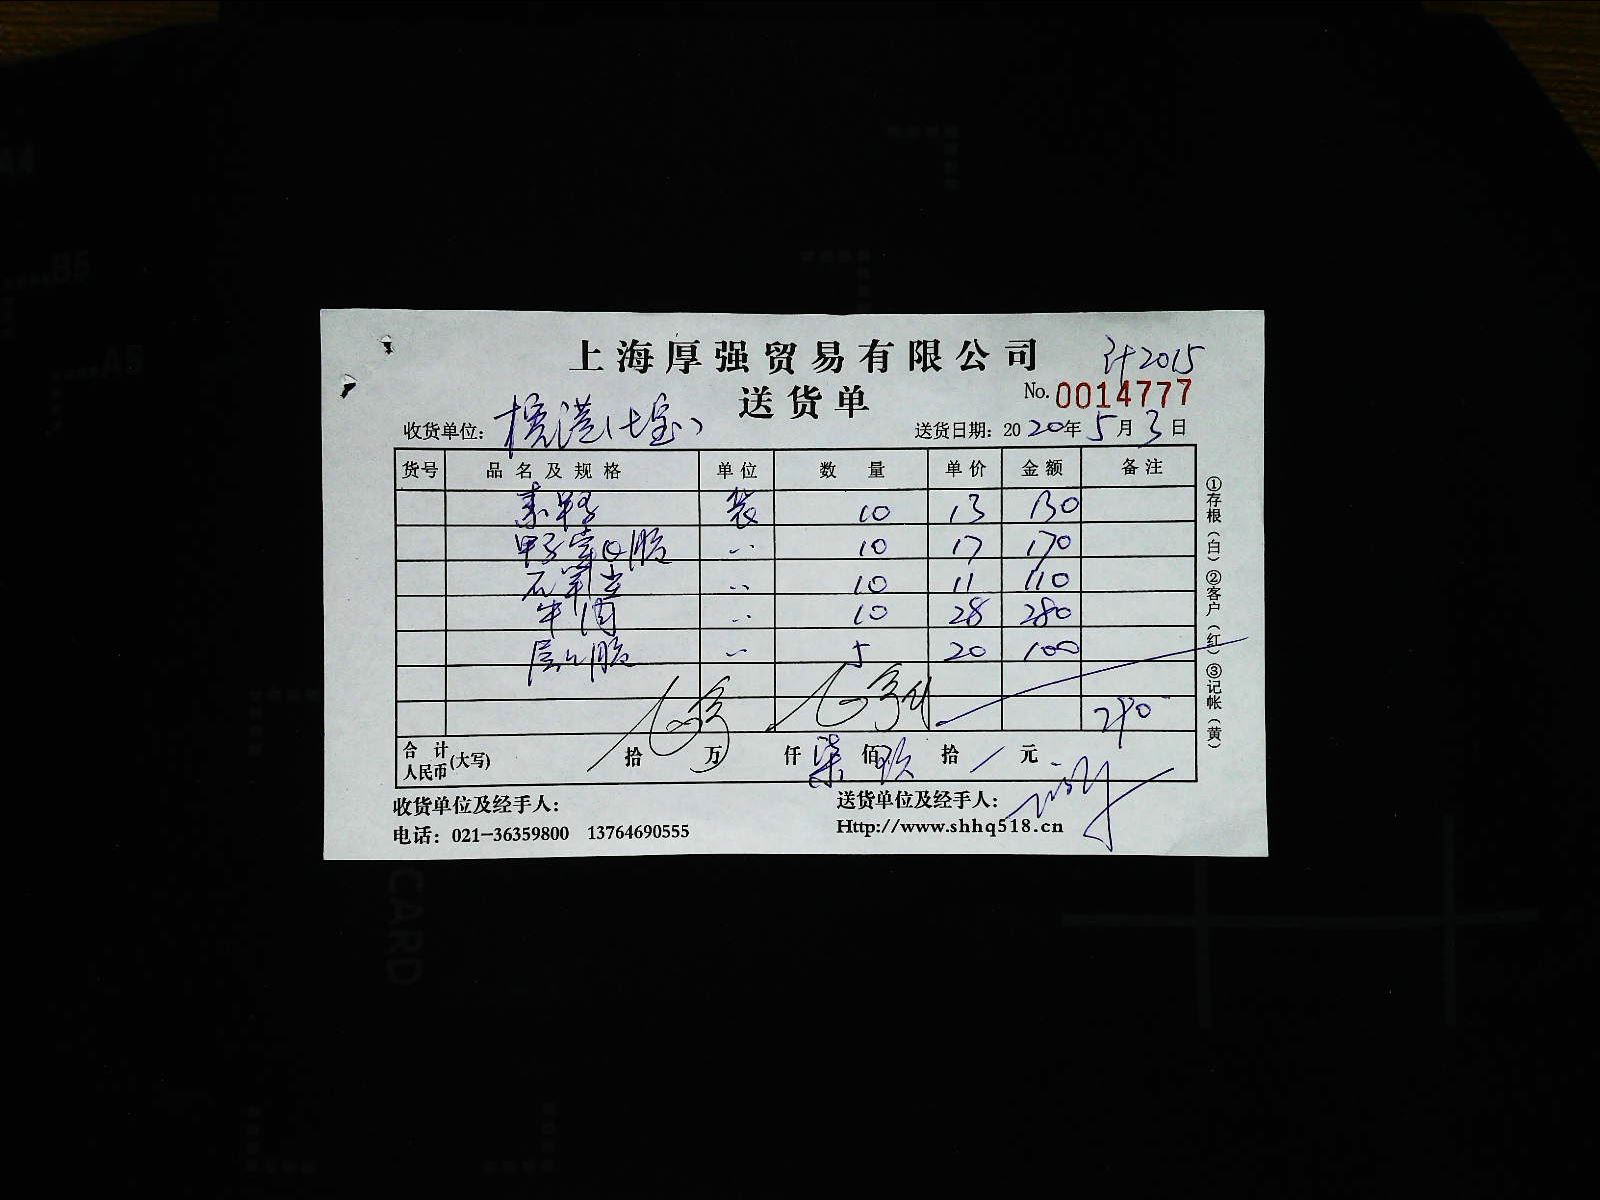 上海厚强贸易有限公司
计2015
送货单
No. 0014777
收货单位： 港(七宝)
送货日期：2020年5月3日
货号 品名及规格 单位 数量 单价 金额 备注
袋 10 13 130
10 17 170
10 11 110
牛肉 10 28 280
5 20 100
790
合计人民币(大写) 拾 万 仟 柒 佰 玖 拾 元
收货单位及经手人：
送货单位及经手人：
电话：021-36359800 13764690555
Http://www.shhq518.cn
①存根(白) ②客户(红) ③记帐(黄)
B5
A5
CARD